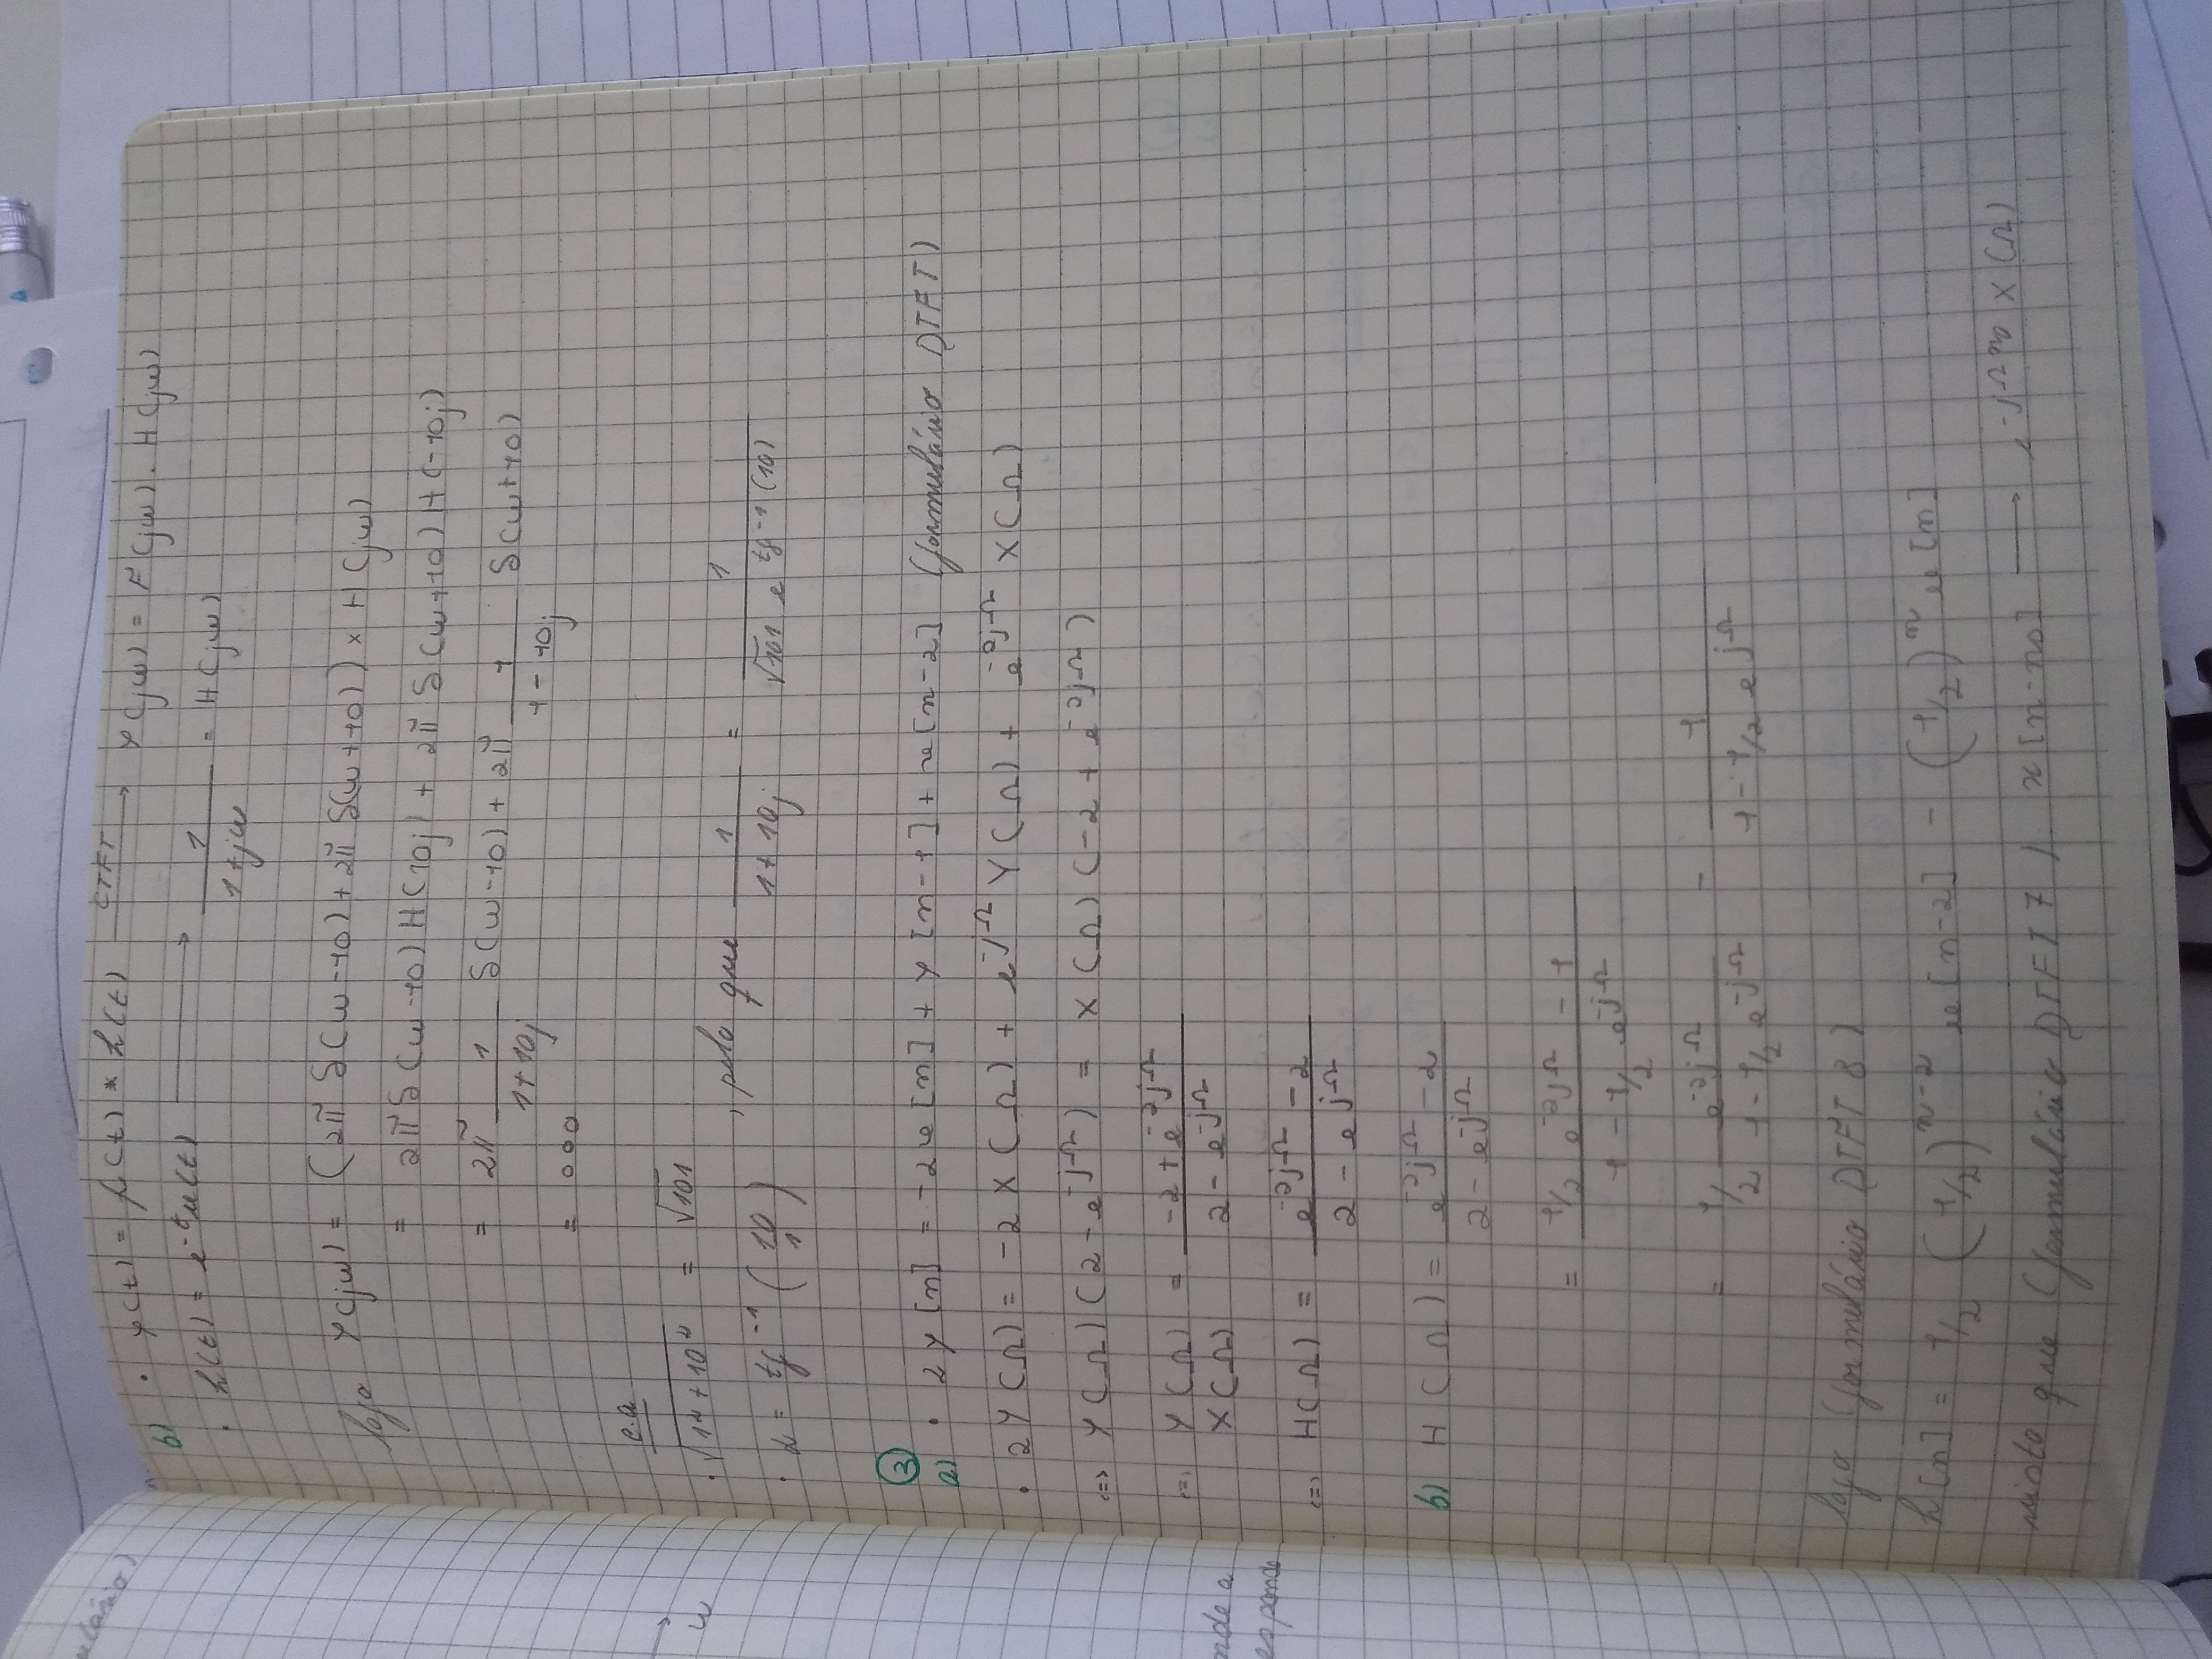 b) • y(t) = p(t) * h(t) CTFT→ Y(jω) = P(jω) . H(jω)
• h(t) = e^-t u(t) → 1/(1+jω) = H(jω)
logo Y(jω) = (2π δ(ω-10) + 2π δ(ω+10)) × H(jω)
= 2π δ(ω-10) H(10j) + 2π δ(ω+10) H(-10j)
= 2π 1/(1+10j) δ(ω-10) + 2π 1/(1-10j) δ(ω+10)
= ooo
c.a
• √(1²+10²) = √101
• α = tg^-1 (10/1) , pelo que 1/(1+10j) = 1/(√101 e^tg^-1(10))
③
a) • 2y[n] = -2x[n] + y[n-1] + x[n-2] (formulário DTFT)
• 2Y(Ω) = -2X(Ω) + e^-jΩ Y(Ω) + e^-2jΩ X(Ω)
<=> Y(Ω)(2 - e^-jΩ) = X(Ω)(-2 + e^-2jΩ)
<=> Y(Ω)/X(Ω) = (-2 + e^-2jΩ)/(2 - e^-jΩ)
<=> H(Ω) = (e^-2jΩ - 2)/(2 - e^-jΩ)
b) H(Ω) = (e^-2jΩ - 2)/(2 - e^-jΩ)
= (1/2 e^-2jΩ - 1)/(1 - 1/2 e^-jΩ)
= 1/2 e^-2jΩ/(1 - 1/2 e^-jΩ) - 1/(1 - 1/2 e^-jΩ)
logo (formulário DTFT 8)
h[n] = 1/2 (1/2)^n-2 u[n-2] - (1/2)^n u[n]
visto que (formulário DTFT 7) x[n-n0] → e^-jΩn0 X(Ω)
ω
nde a
esponde